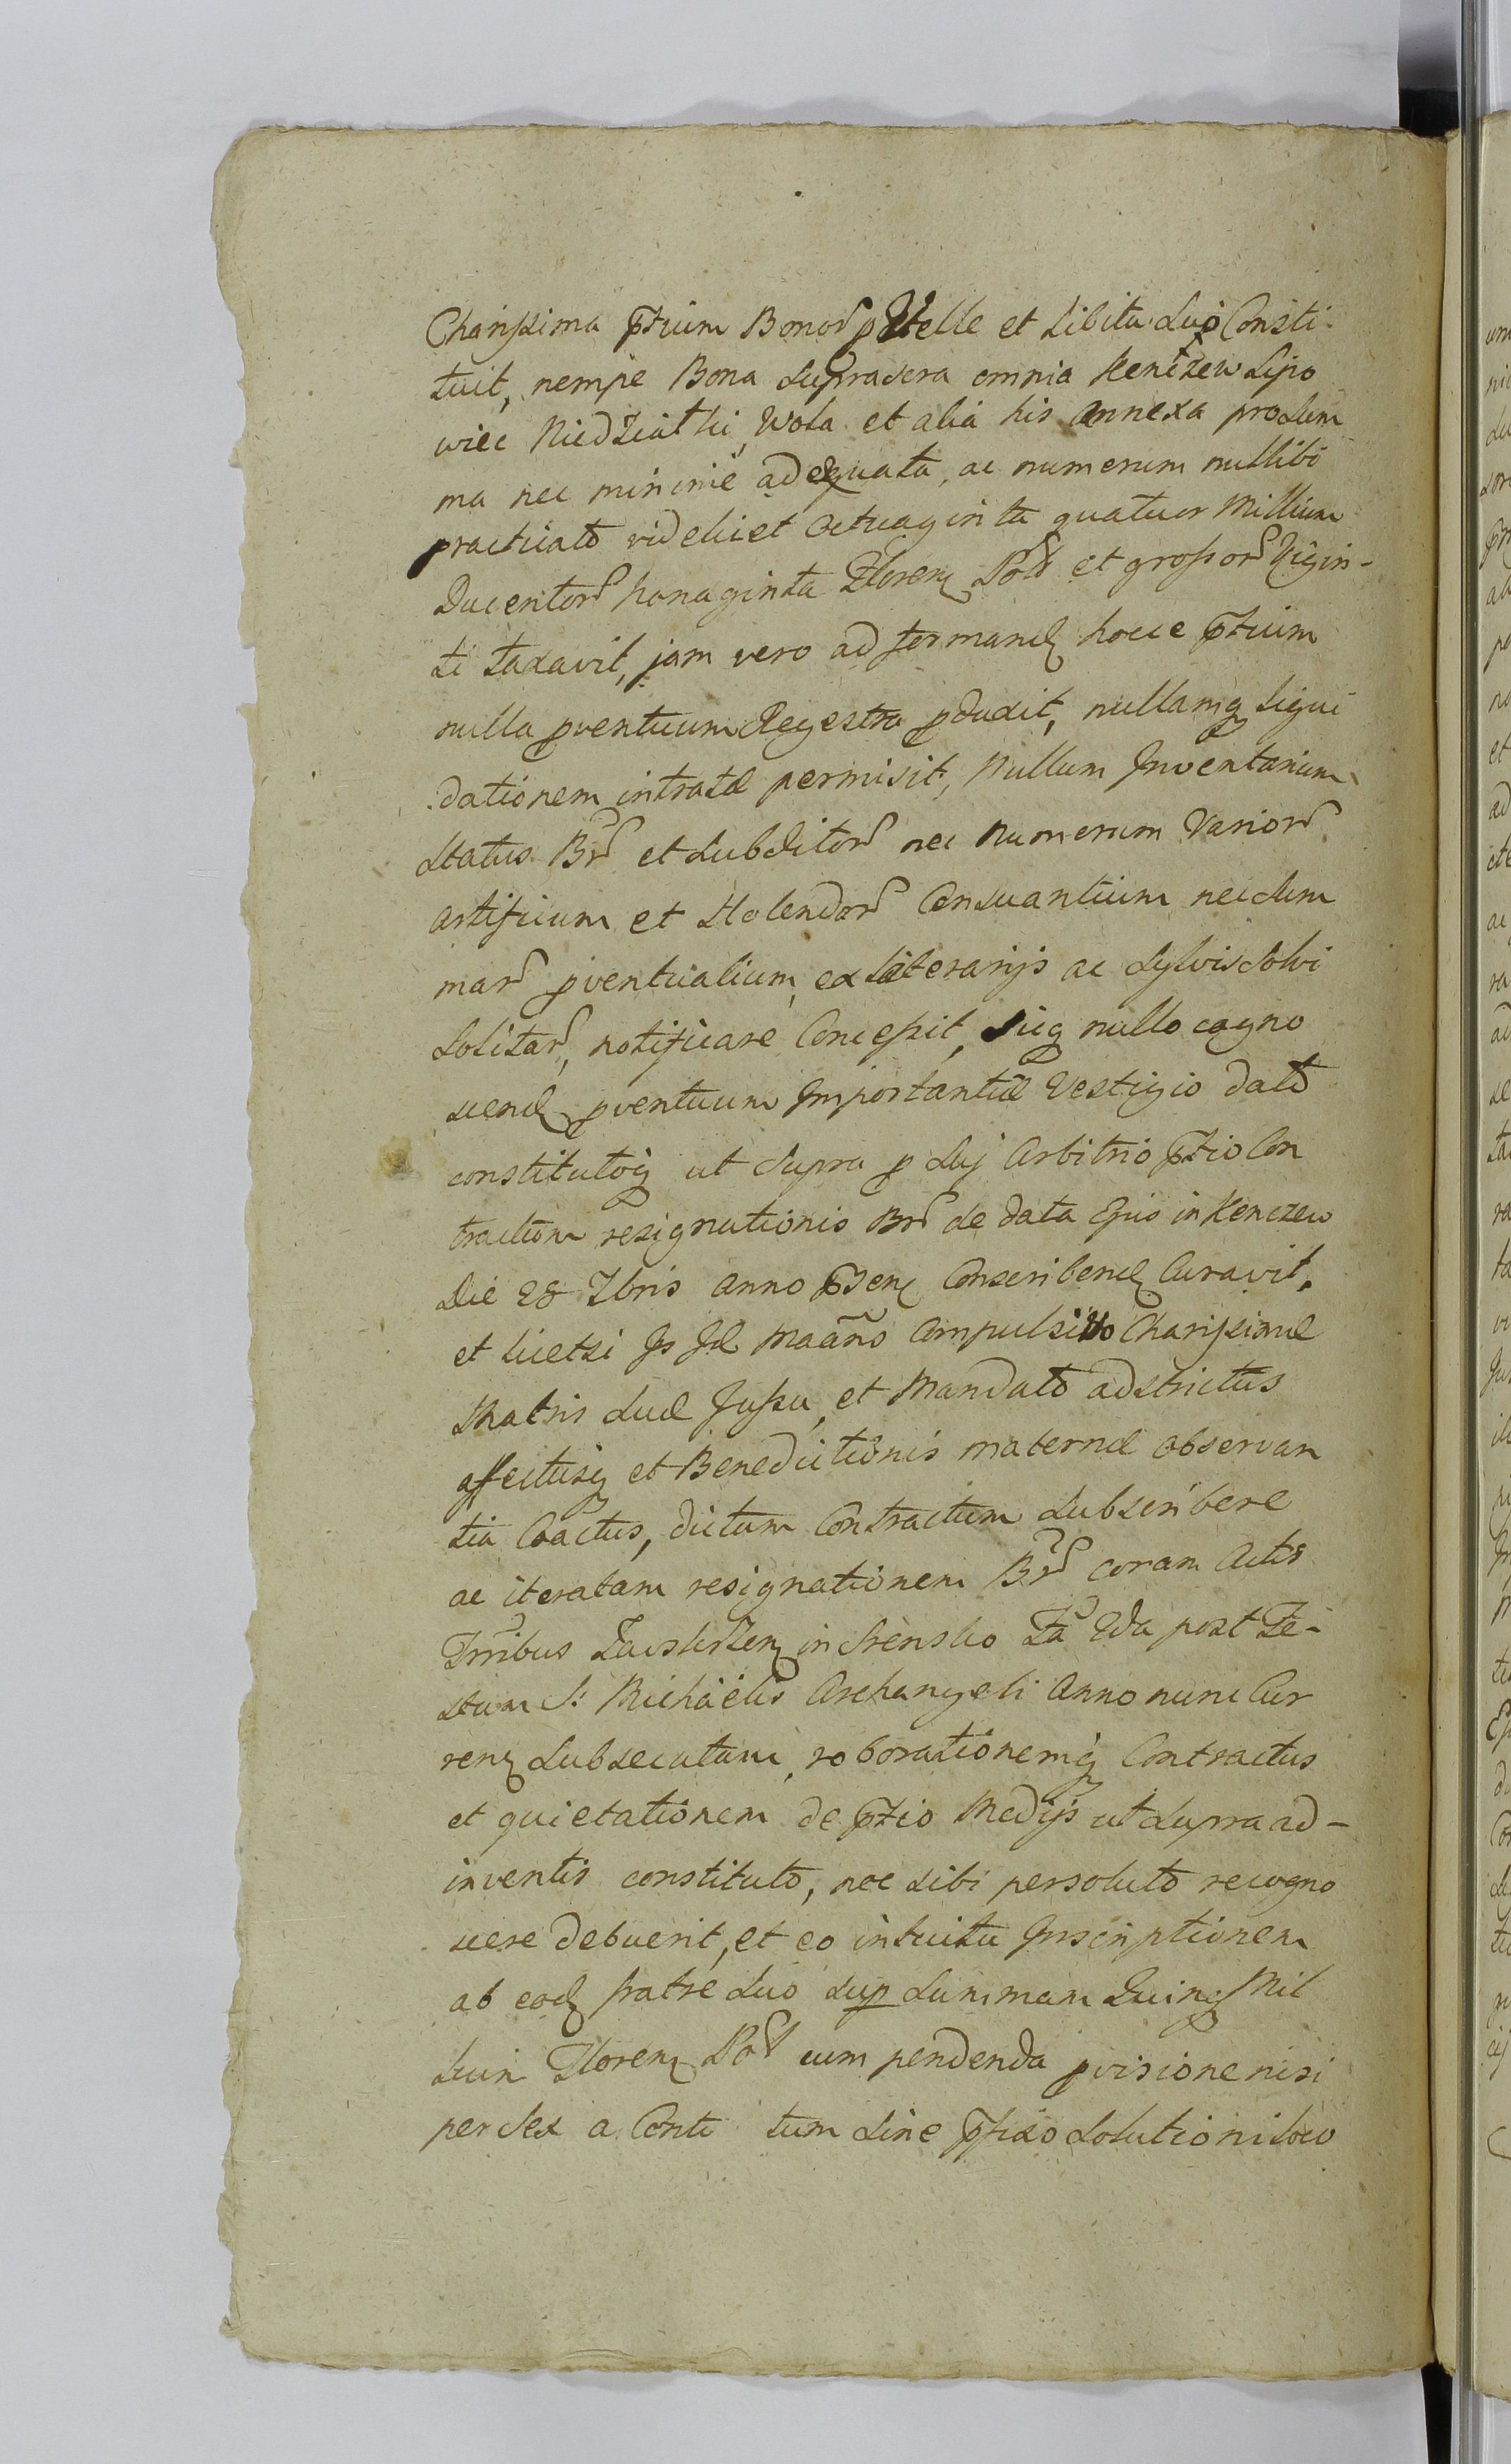 Charissima ptium Bonor p Velle et Libitu Suo Consti-
tuit, nempe Bona Suprascra omnia Kenczew Lipo
wiec Niedzialki, Wola et alia his annexa pro Sum
ma nec minime adequata, ac numerum nullibi
practicato videlicet Octuaginta quatuor Millium
Ducentor Nonaginta Floren Pol et grossor Vigin-
ti taxavit, jam vero ad formand hocce ptium
nulla pventuum Regestra pduxit, nullamq Liqui
dationem intratæ permisit, Nullum Inventarium
Status Br et Subditor nec Numerum Varior
artificum et Holendor Censuantium nec Sum
mar pventualium, ex Literarijs ac Sylvis Solvi
Solitar, notificare Concessit, Sicq nullo cogno
scend pventuum Importantiæ Vestigio dato
constitutoq ut Supra p Sui Arbitrio ptio Con
tractum resignationis Br de data Ejus in Kenczew
Die 28 7bris anno psen Conscribend Curavit,
et licet si Is Jd Maano Compulsivo Charissimæ
Matris Suæ Jussu, et Mandato adstrictus
affectusq et Benedictionis maternæ observan
tia Coactus, dictum Contractum Subscribere
ac iteratam resignationem Br coram Actis
Trribus in Srensko Fa 2da post Fe-
stum S: Michäelis Archangeli Anno nunc Cur
ren Subsecutam, roborationemq Contractus
et quietationem de ptio Medijs ut Supra ad-
inventis constituto, nec sibi persoluto recogno
scere debuerit, et eo intuitu Inscriptionem
ab eod fratre Suo sup Summam Quinq Mil
lium Floren Pol cum pendenda pvisione nisi
per Sex a Centu tum Sine pfixo Solutioni loco